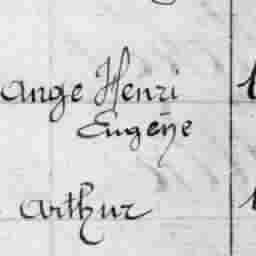 ange Henri
Eugène
Arthur